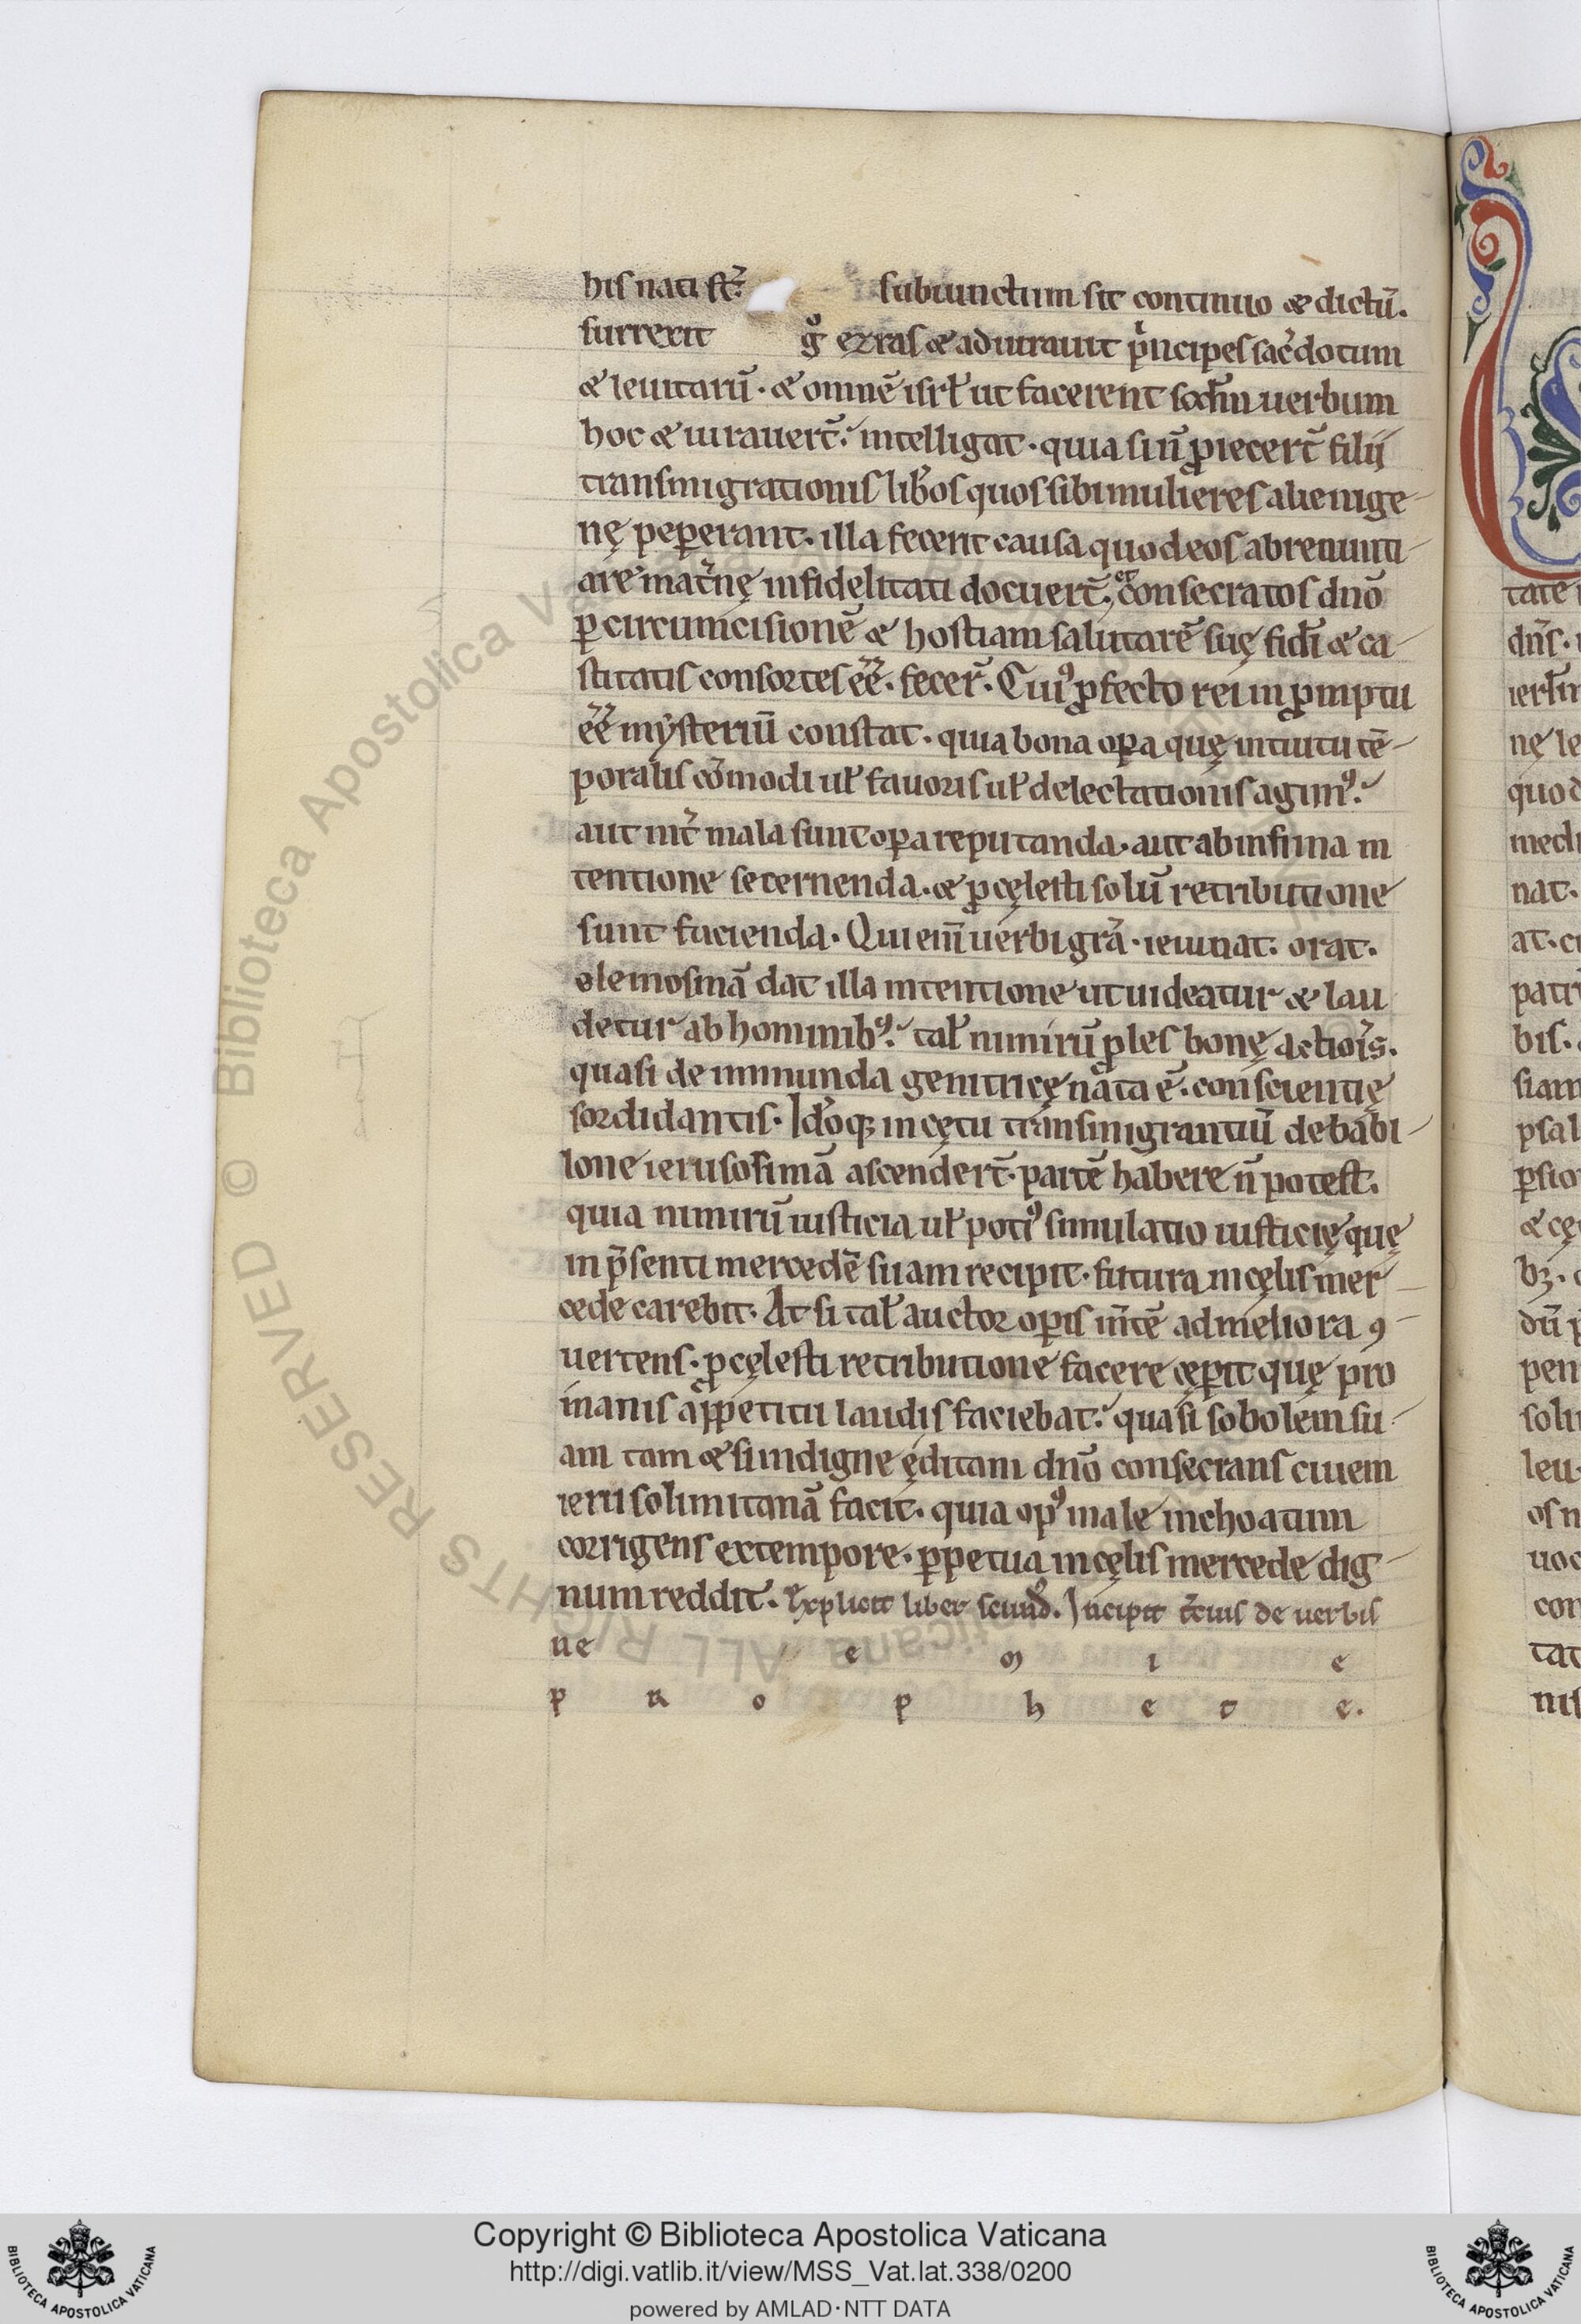 his nati st̄: subiunctum sit continuo & dictū.
surrexit gͦ ezras & adiurauit pͥncipes sac̄dotum
& leuitarū. & omnē isrł ut facerent scd̄m uerbum
hoc & iurauert̄. intelligat. quia si n̄ ꝓiecert̄ filii
transmigrationis lib̄os quos sibi mulieres alienige-
nę pep̄erant. illa fecerit causa quod eos abrenunti-
are mat̄nę infidelitati docuert̄. et consecratos dn̄o
ꝑ circumcisionē & hostiam salutarē suę fidēi & ca-
stitatis consortes ēē. fecer̄. Cuiꝰ ꝓfecto rei in ꝓmptu
ēē mysteriū constat. quia bona oꝑa quę intuitu tē-
poralis cōmodi uł fauoris uł delectationis agimꝰ.
aut int̄ mala sunt oꝑa reputanda. aut ab infima in
tentione secernenda. & ꝓ cęlesti solū retributione
sunt facienda. Qui eni͞ uerbi grā. ieiunat. orat.
elemosinā dat illa intentione ut uideatur & lau
detur ab hominibꝰ. tał nimirū ꝓles bonę actiōis.
quasi de immunda genitricę nata ē. conscientię
sordidantis. Idōqꝫ in cętu transmigrantiū de babi-
lone ierusolimā ascendert̄. partē habere n̄ potest.
quia nimirū iusticia uł potiꝰ simulatio iusticię quę
in p̄senti mercedē suam recipit. futura in cęlis mer-
cede carebit. At si tał auctor oꝑis m̄tē ad meliora ꝯ-
uertens. ꝓ cęlesti retributione facere cęꝑit quę pro
inanis appetitu laudis faciebat. quasi sobolem su-
am tam & si indigne ęditam dn̄o consecrans ciuem
ierusolimitanā facit. quia opꝰ male inchoatum
corrigens ex tempore. ꝑpetua in cęlis mercede dig-
num reddit. Explicit liber scunđ. Incipit t̄cius de uerbis
ne e m i e
p R o p h e t e.
tate
dn̄s.
ierłm
nę le
quod
medi
nat.
at. ci
patri
bis.
siam
psal
ꝑsio
& cę
bꝫ.
dū
pen
solu
leu
os n
uoc
con
tat
nis
© Biblioteca Apostolica Vaticana ALL RIGHTS RESERVED
Copyright © Biblioteca Apostolica Vaticana
http://digi.vatlib.it/view/MSS_Vat.lat.338/0200
powered by AMLAD·NTT DATA
BIBLIOTECA APOSTOLICA VATICANA
BIBLIOTECA APOSTOLICA VATICANA